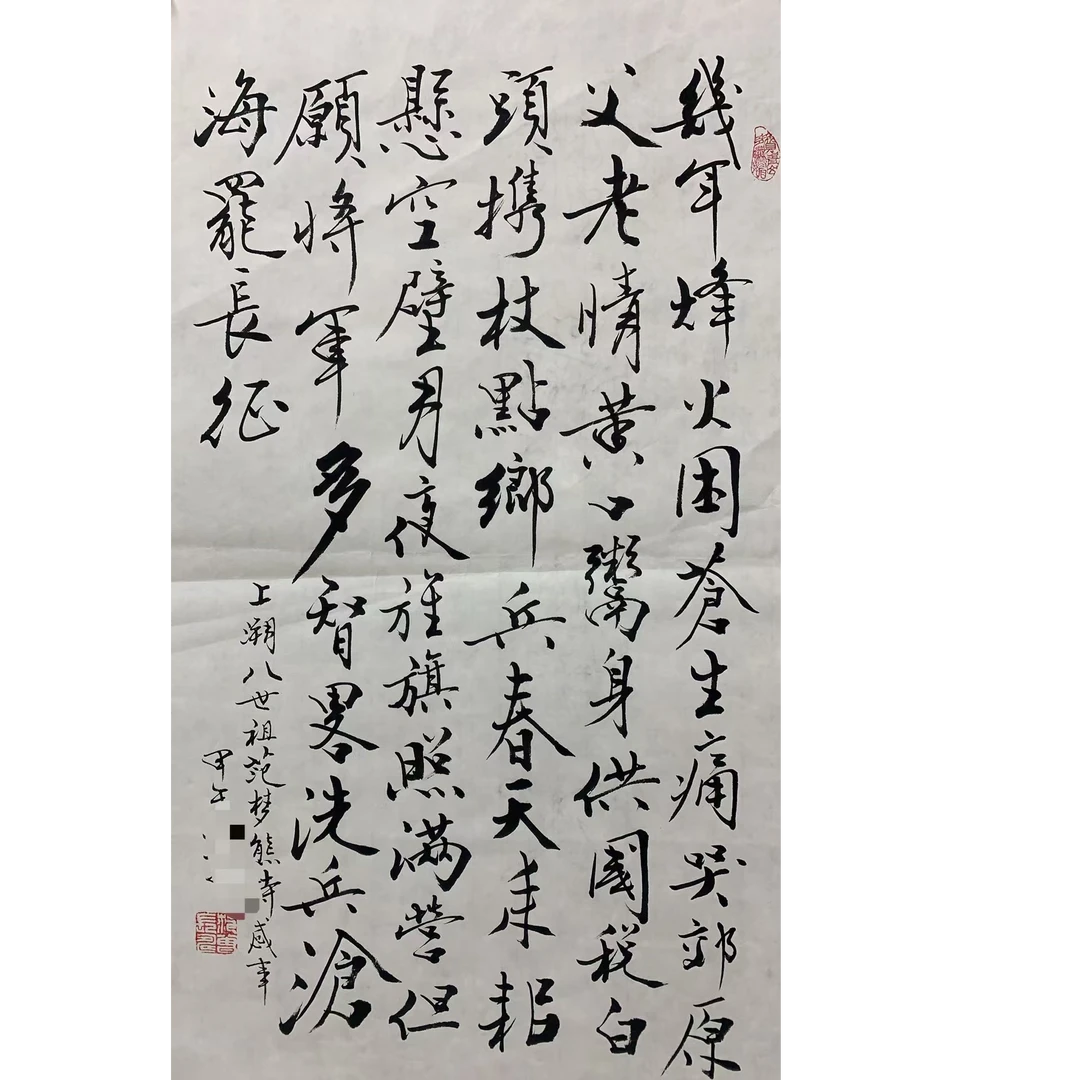 幾年烽火困蒼生痛哭郊原
父老情黃口鬻身供國稅白
頭携杖點鄉兵春天耒耜
懸空壁月夜旌旗照滿營但
願將軍多智畧洗兵滄
海罷長征
上溯八世祖范梦熊寺感事
甲午